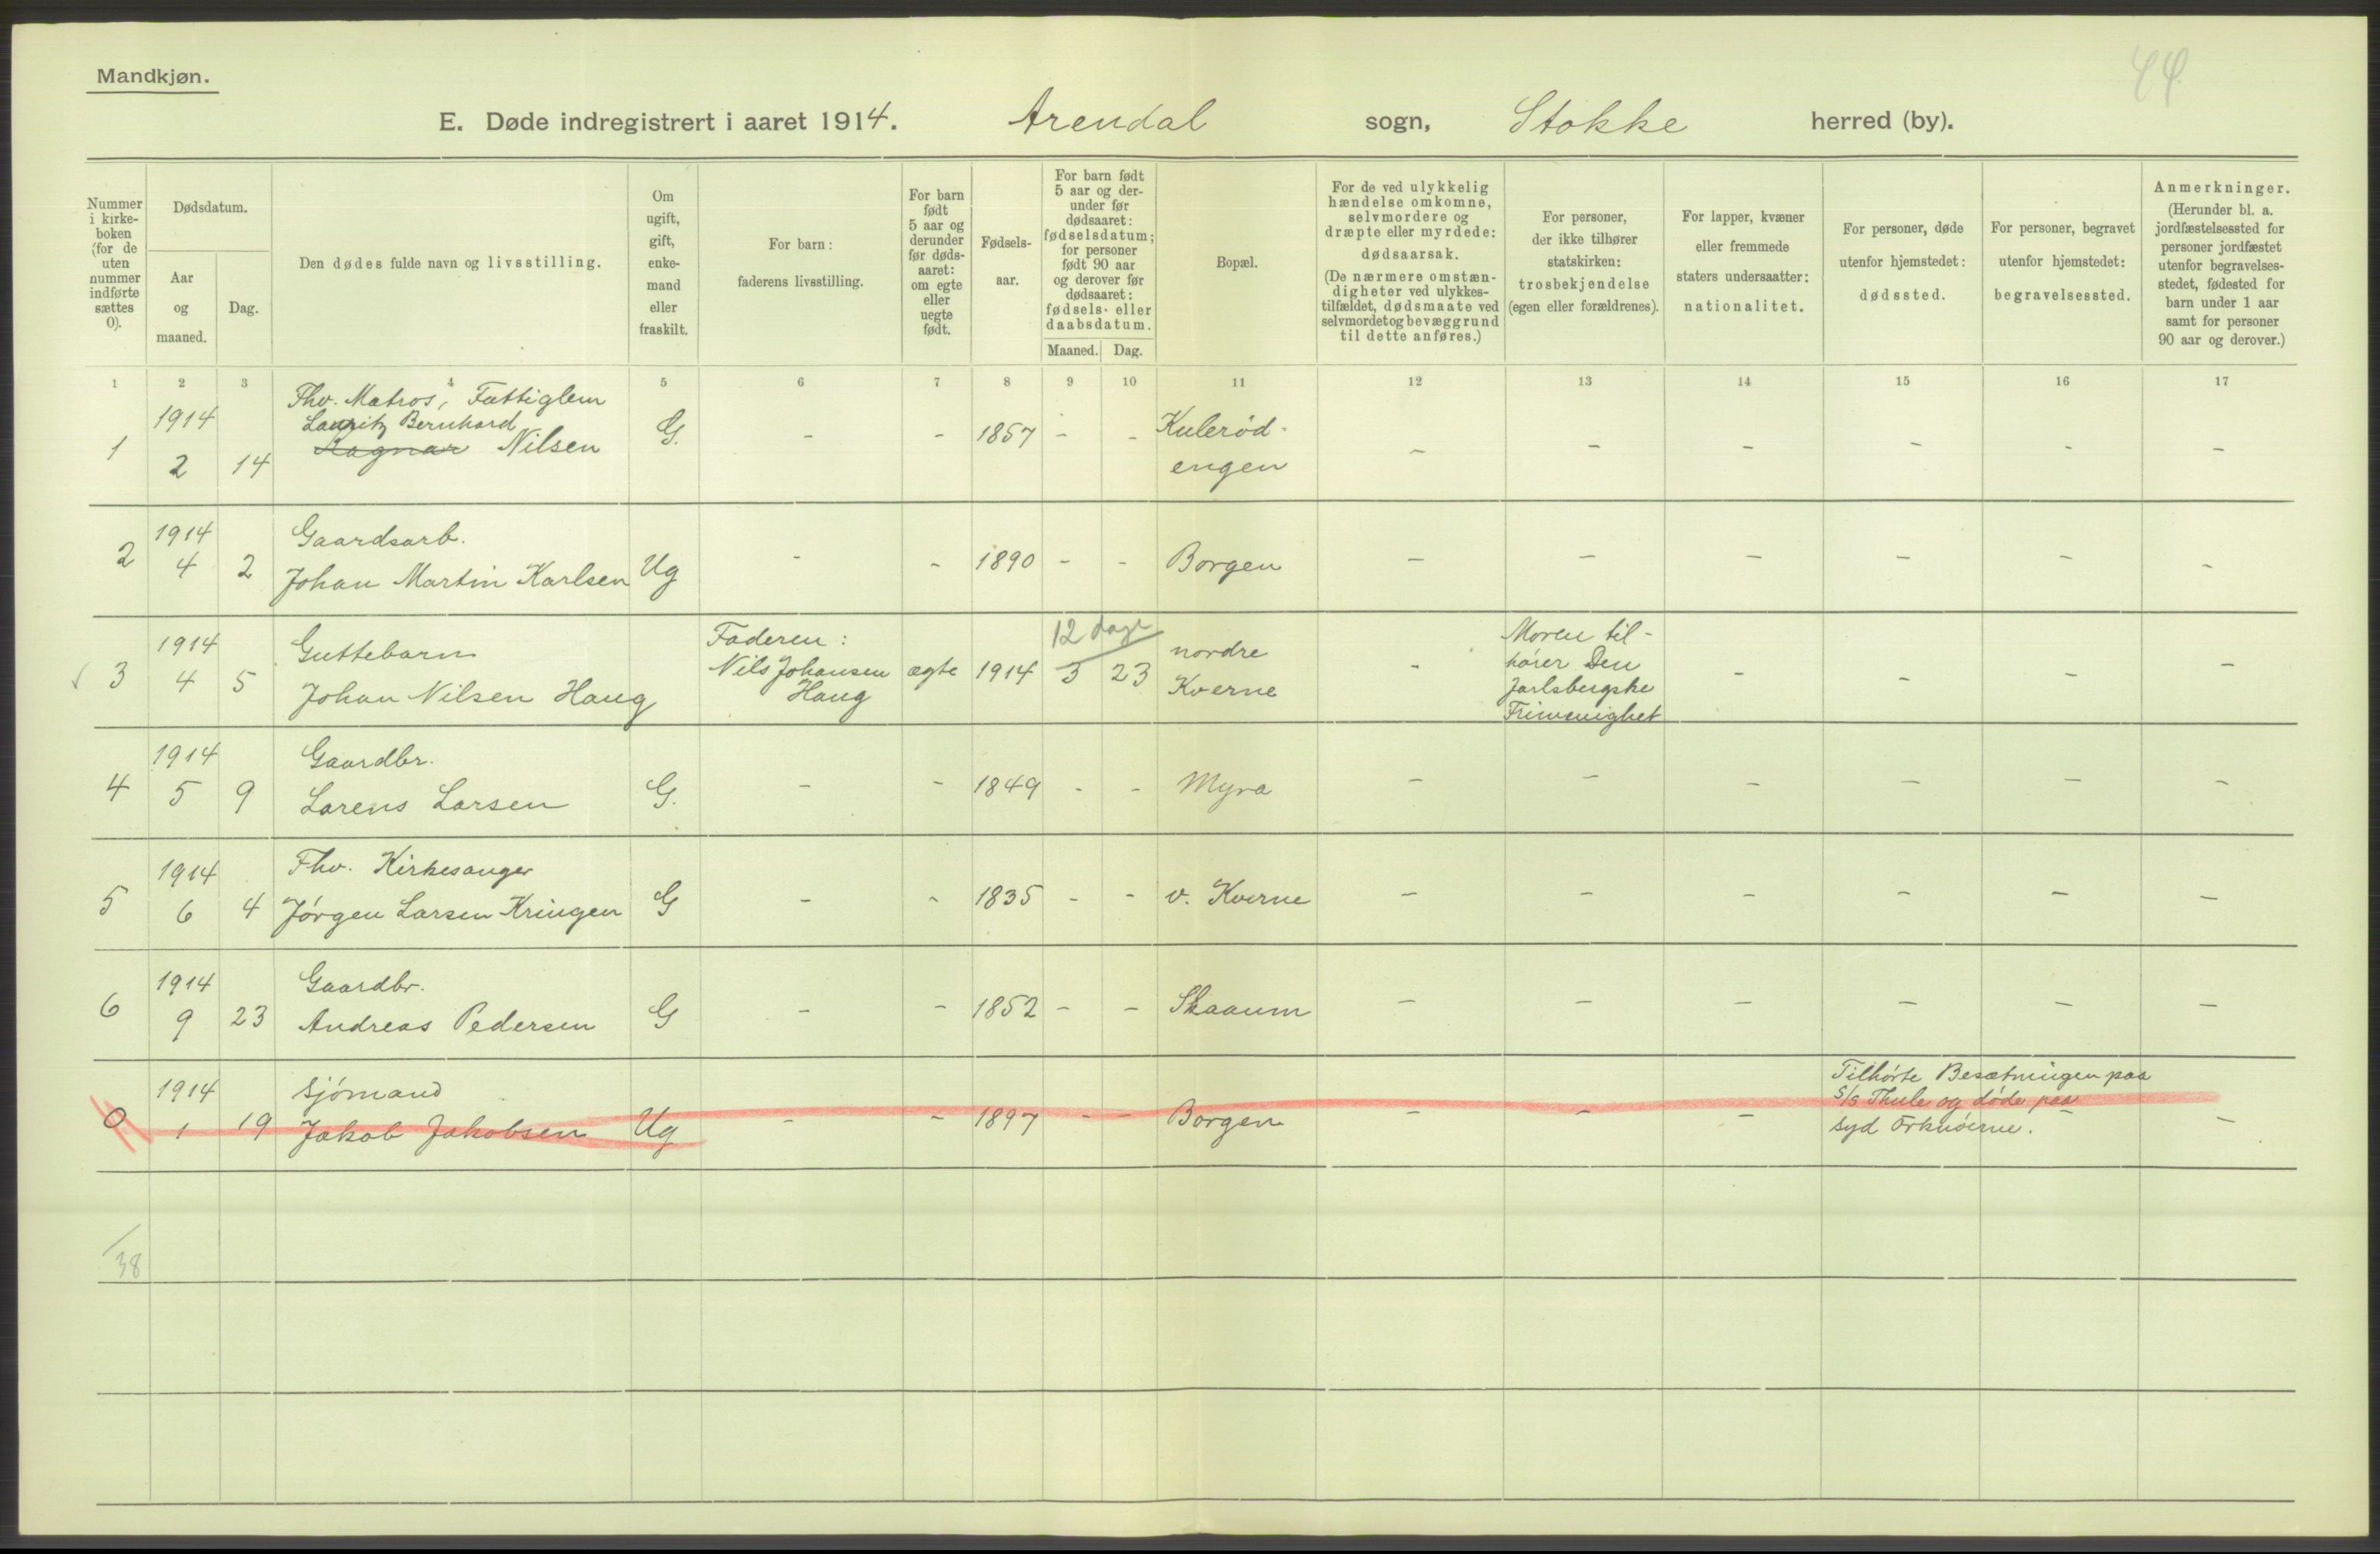 Mandkjøn.
44.
E. Døde indregistrert i aaret 1914. Arendal sogn, Stokke herred (by).
Nummer i kirke-boken (for de uten nummer indførte sættes 0).
Dødsdatum.
Aar og maaned.
Dag.
Den dødes fulde navn og livsstilling.
Om ugift, gift, enke-mand eller fraskilt.
For barn: faderens livsstilling.
For barn født 5 aar og derunder før døds-aaret: om egte eller uegte født.
Fødsels-aar.
For barn født 5 aar og der-under før dødsaaret: fødselsdatum; for personer født 90 aar og derover før dødsaaret: fødsels- eller daabsdatum.
Maaned. Dag.
Bopæl.
For de ved ulykkelig hændelse omkomne, selvmordere og dræpte eller myrdede: dødsaarsak. (De nærmere omstæn-digheter ved ulykkes-tilfældet, dødsmaate ved selvmord et og bevæggrund til dette anføres.)
For personer, der ikke tilhører statskirken: trosbekjendelse (egen eller forældrenes).
For lapper, kvæner eller fremmede staters undersaatter: nationalitet.
For personer, døde utenfor hjemstedet: dødssted.
For personer, begravet utenfor hjemstedet: begravelsessted.
Anmerkninger. (Herunder bl. a. jordfæstelsessted for personer jordfæstet utenfor begravelses-stedet, fødested for barn under 1 aar samt for personer 90 aar og derover.)
1 2 3 4 5 6 7 8 9 10 11 12 13 14 15 16 17
Fhv. Matros, Fattiglem
1914 Lauritz Bernhard
1 2 14 Ragnar Nilsen G. - - 1857 - - Kulerød-engen - - - - - -
1914 Gaardsarb.
2 4 2 Johan Martin Karlsen Ug - - 1890 - - Borgen - - - - - -
12 dage
1914 Guttebarn
3 4 5 Johan Nilsen Haug Faderen: Nils Johansen Haug ægte 1914 3 23 nordre Kverne - Moren til-hører Den Jarlsbergske Frimenighet - - - -
1914 Gaardbr.
4 5 9 Lorens Larsen G. - - 1849 - - Myra - - - - - -
1914 Fhv. Kirkesanger
5 6 4 Jørgen Larsen Kringen G - - 1835 - - v. Kverne - - - - - -
1914 Gaardbr.
6 9 23 Andreas Pedersen G - - 1852 - - Skaaum - - - - - -
1914 Sjømand
0 1 19 Jakob Jakobsen Ug - - 1897 - - Borgen - - - Tilhørte Besætningen paa S/S Thule og døde paa Syd Orknøerne. - -
38